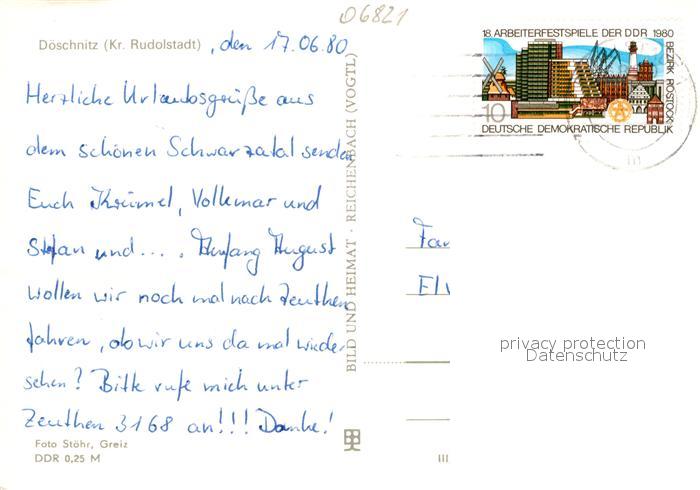 06821
Döschnitz (Kr. Rudolstadt) , den 17.06.80
Herzliche Urlaubsgrüße aus
dem schönen Schwarzatal senden
Euch Krümel, Volkmar und
Stefan und .... Anfang August
wollen wir noch mal nach Zeuthen
fahren, ob wir uns da mal wieder
sehen? Bitte rufe mich unter
Zeuthen 3168 an!!! Danke!
Foto Stöhr, Greiz
DDR 0,25 M
BILD UND HEIMAT · REICHENBACH (VOGTL)
18. ARBEITERFESTSPIELE DER DDR 1980
BEZIRK ROSTOCK
10
DEUTSCHE DEMOKRATISCHE REPUBLIK
Fa
El
privacy protection
Datenschutz
III